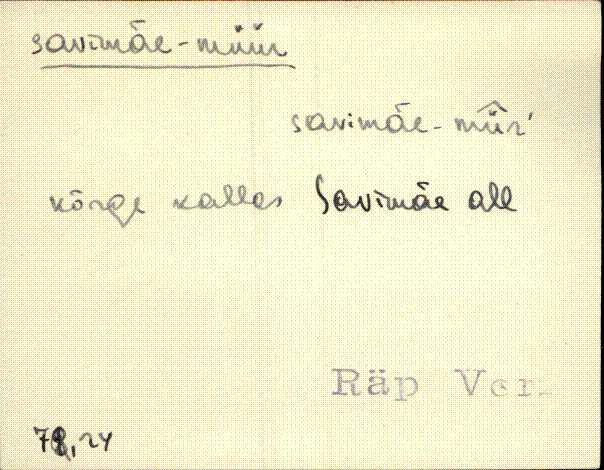 savimäe-müür
savimäe-mü̂r'
kõrge kallas Savimäe all
Räp Ver.